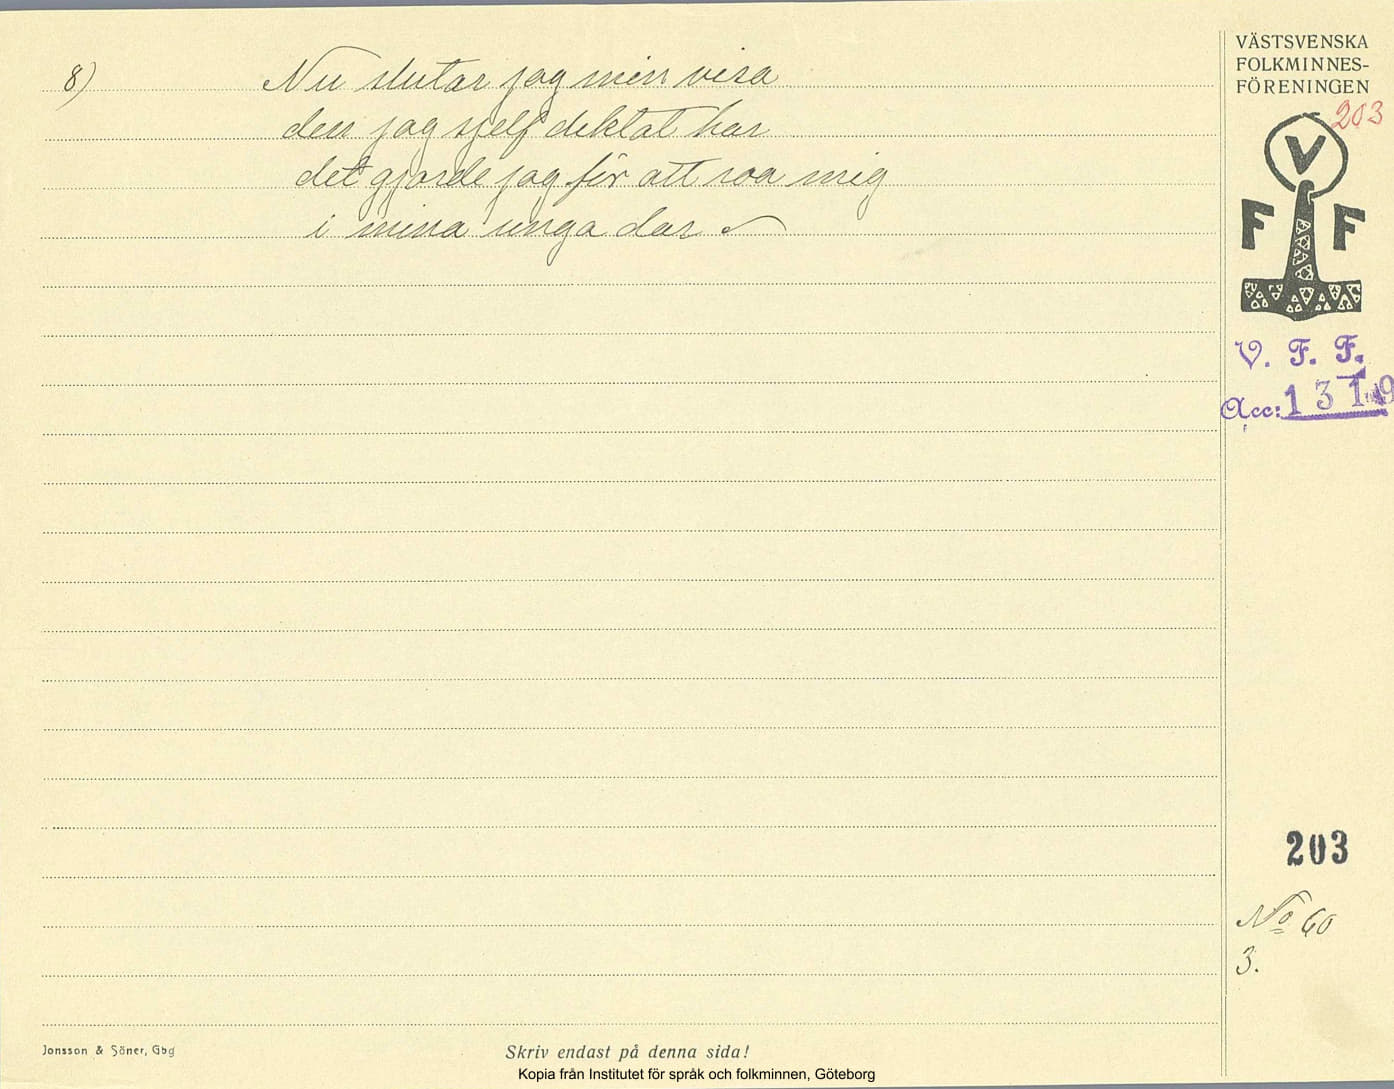 8) Nu slutar jag min visa
den jag sjelf diktat har
det gjorde jag för att roa mig
i mina unga dar
VÄSTSVENSKA
FOLKMINNES-
FÖRENINGEN
203
V
F F
V. F. F.
Acc: 1319
203
No 60
3.
Jonsson & Söner, Gbg
Skriv endast på denna sida!
Kopia från Institutet för språk och folkminnen, Göteborg